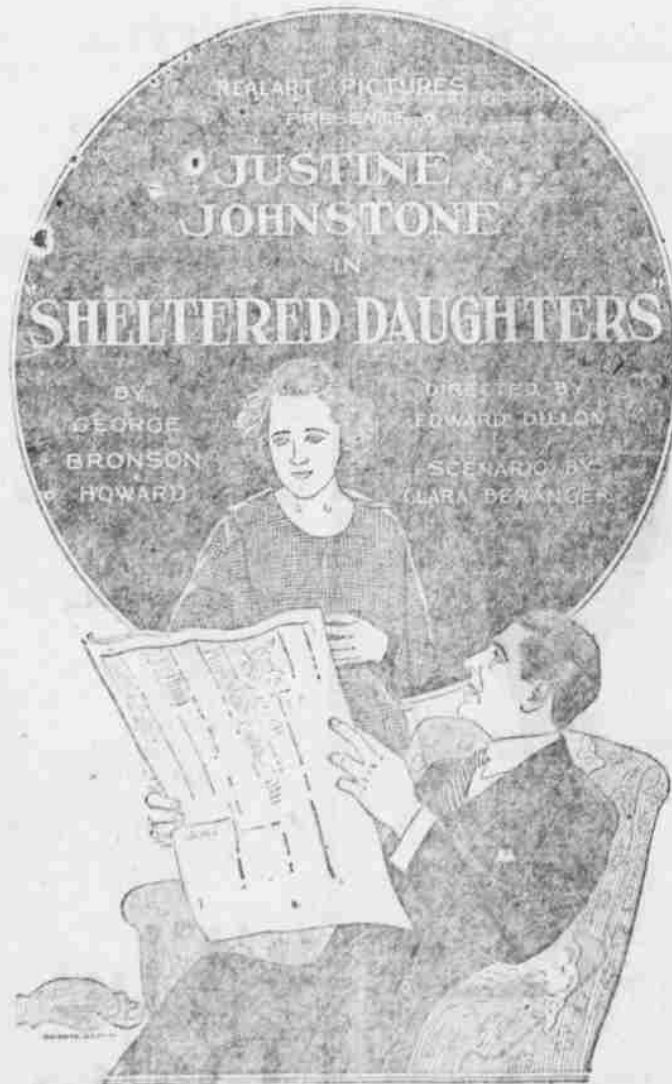 REALART PICTURES
PRESENTS
JUSTINE
JOHNSTONE
IN
"SHELTERED DAUGHTERS"
BY
GEORGE
BRONSON
HOWARD
DIRECTED BY
EDWARD DILLON
SCENARIO BY
CLARA BERANGER